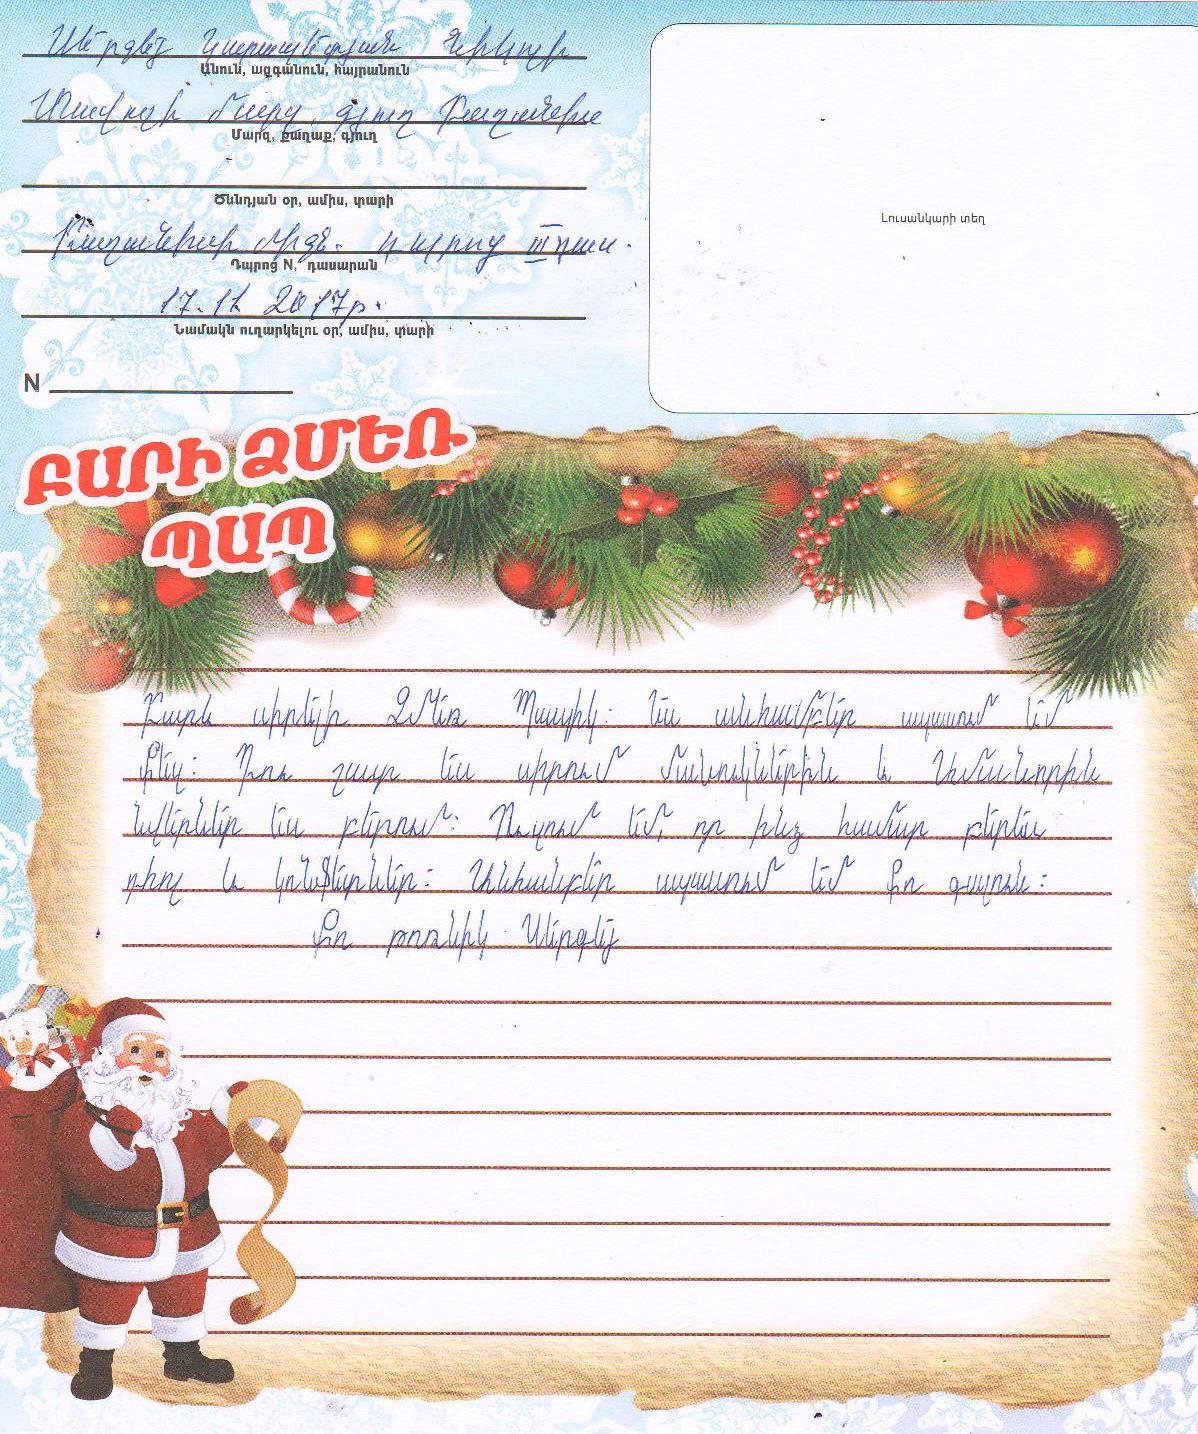 Սերգեյ Կարապետյան Նիկոլի
Անուն, ազգանուն, հայրանուն
Տավուշի մարզ, գյուղ Բաղանիս
Մարզ, քաղաք, գյուղ
Ծննդյան օր, ամիս, տարի
Բաղանիսի միջն. դպրոց III դաս.
Դպրոց N, դասարան
17.11 2017թ.
Նամակն ուղարկելու օր, ամիս, տարի
N
Լուսանկարի տեղ
ԲԱՐԻ ՁՄԵՌ
ՊԱՊ
Բարև սիրելի Ձմեռ Պապիկ: Ես անհամբեր սպասում եմ
քեզ: Դու շատ ես սիրում մանուկներին և Ամանորին
նվերներ ես բերում: Ուզում եմ, որ ինձ համար բերես
դհոլ և կոնֆետներ: Անհամբեր սպասում եմ քո գալուն:
Քո թոռնիկ Սերգեյ